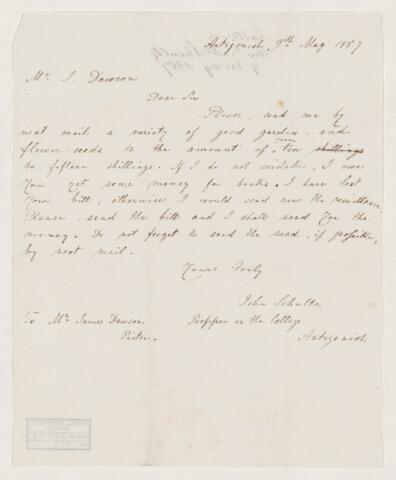 Antigonish, 9th May 1857
Mr. J. Dawson
Dear Sir
Please, send me by
next mail a variety of good garden and
flower-seeds to the amount of from ten shillings
to fifteen shillings. If I do not mistake, I owe
You yet some money for books. I have lost
Your bill, otherwise I would send now the remittance.
Please, send the bill and I shall send You the
money. Do not forget to send the seed, if possible,
by next mail.
Yours truly
John Schulte
To Mr. James Dawson. Professor in the College
Pictou. Antigonish.